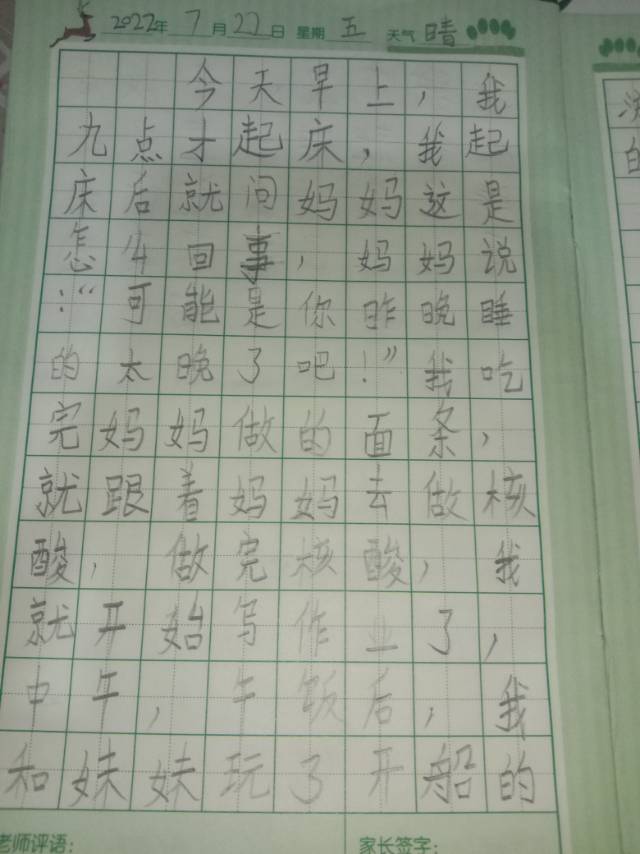 2022年 7月22日 星期 五 天气 晴
今天早上，我
九点才起床，我起
床后就问妈妈这是
怎么回事，妈妈说
：“可能是你昨晚睡
的太晚了吧！”我吃
完妈妈做的面条，
就跟着妈妈去做核
酸，做完核酸，我
就开始写作业了，
中午，午饭后，我
和妹妹玩了开船的
老师评语：
家长签字：